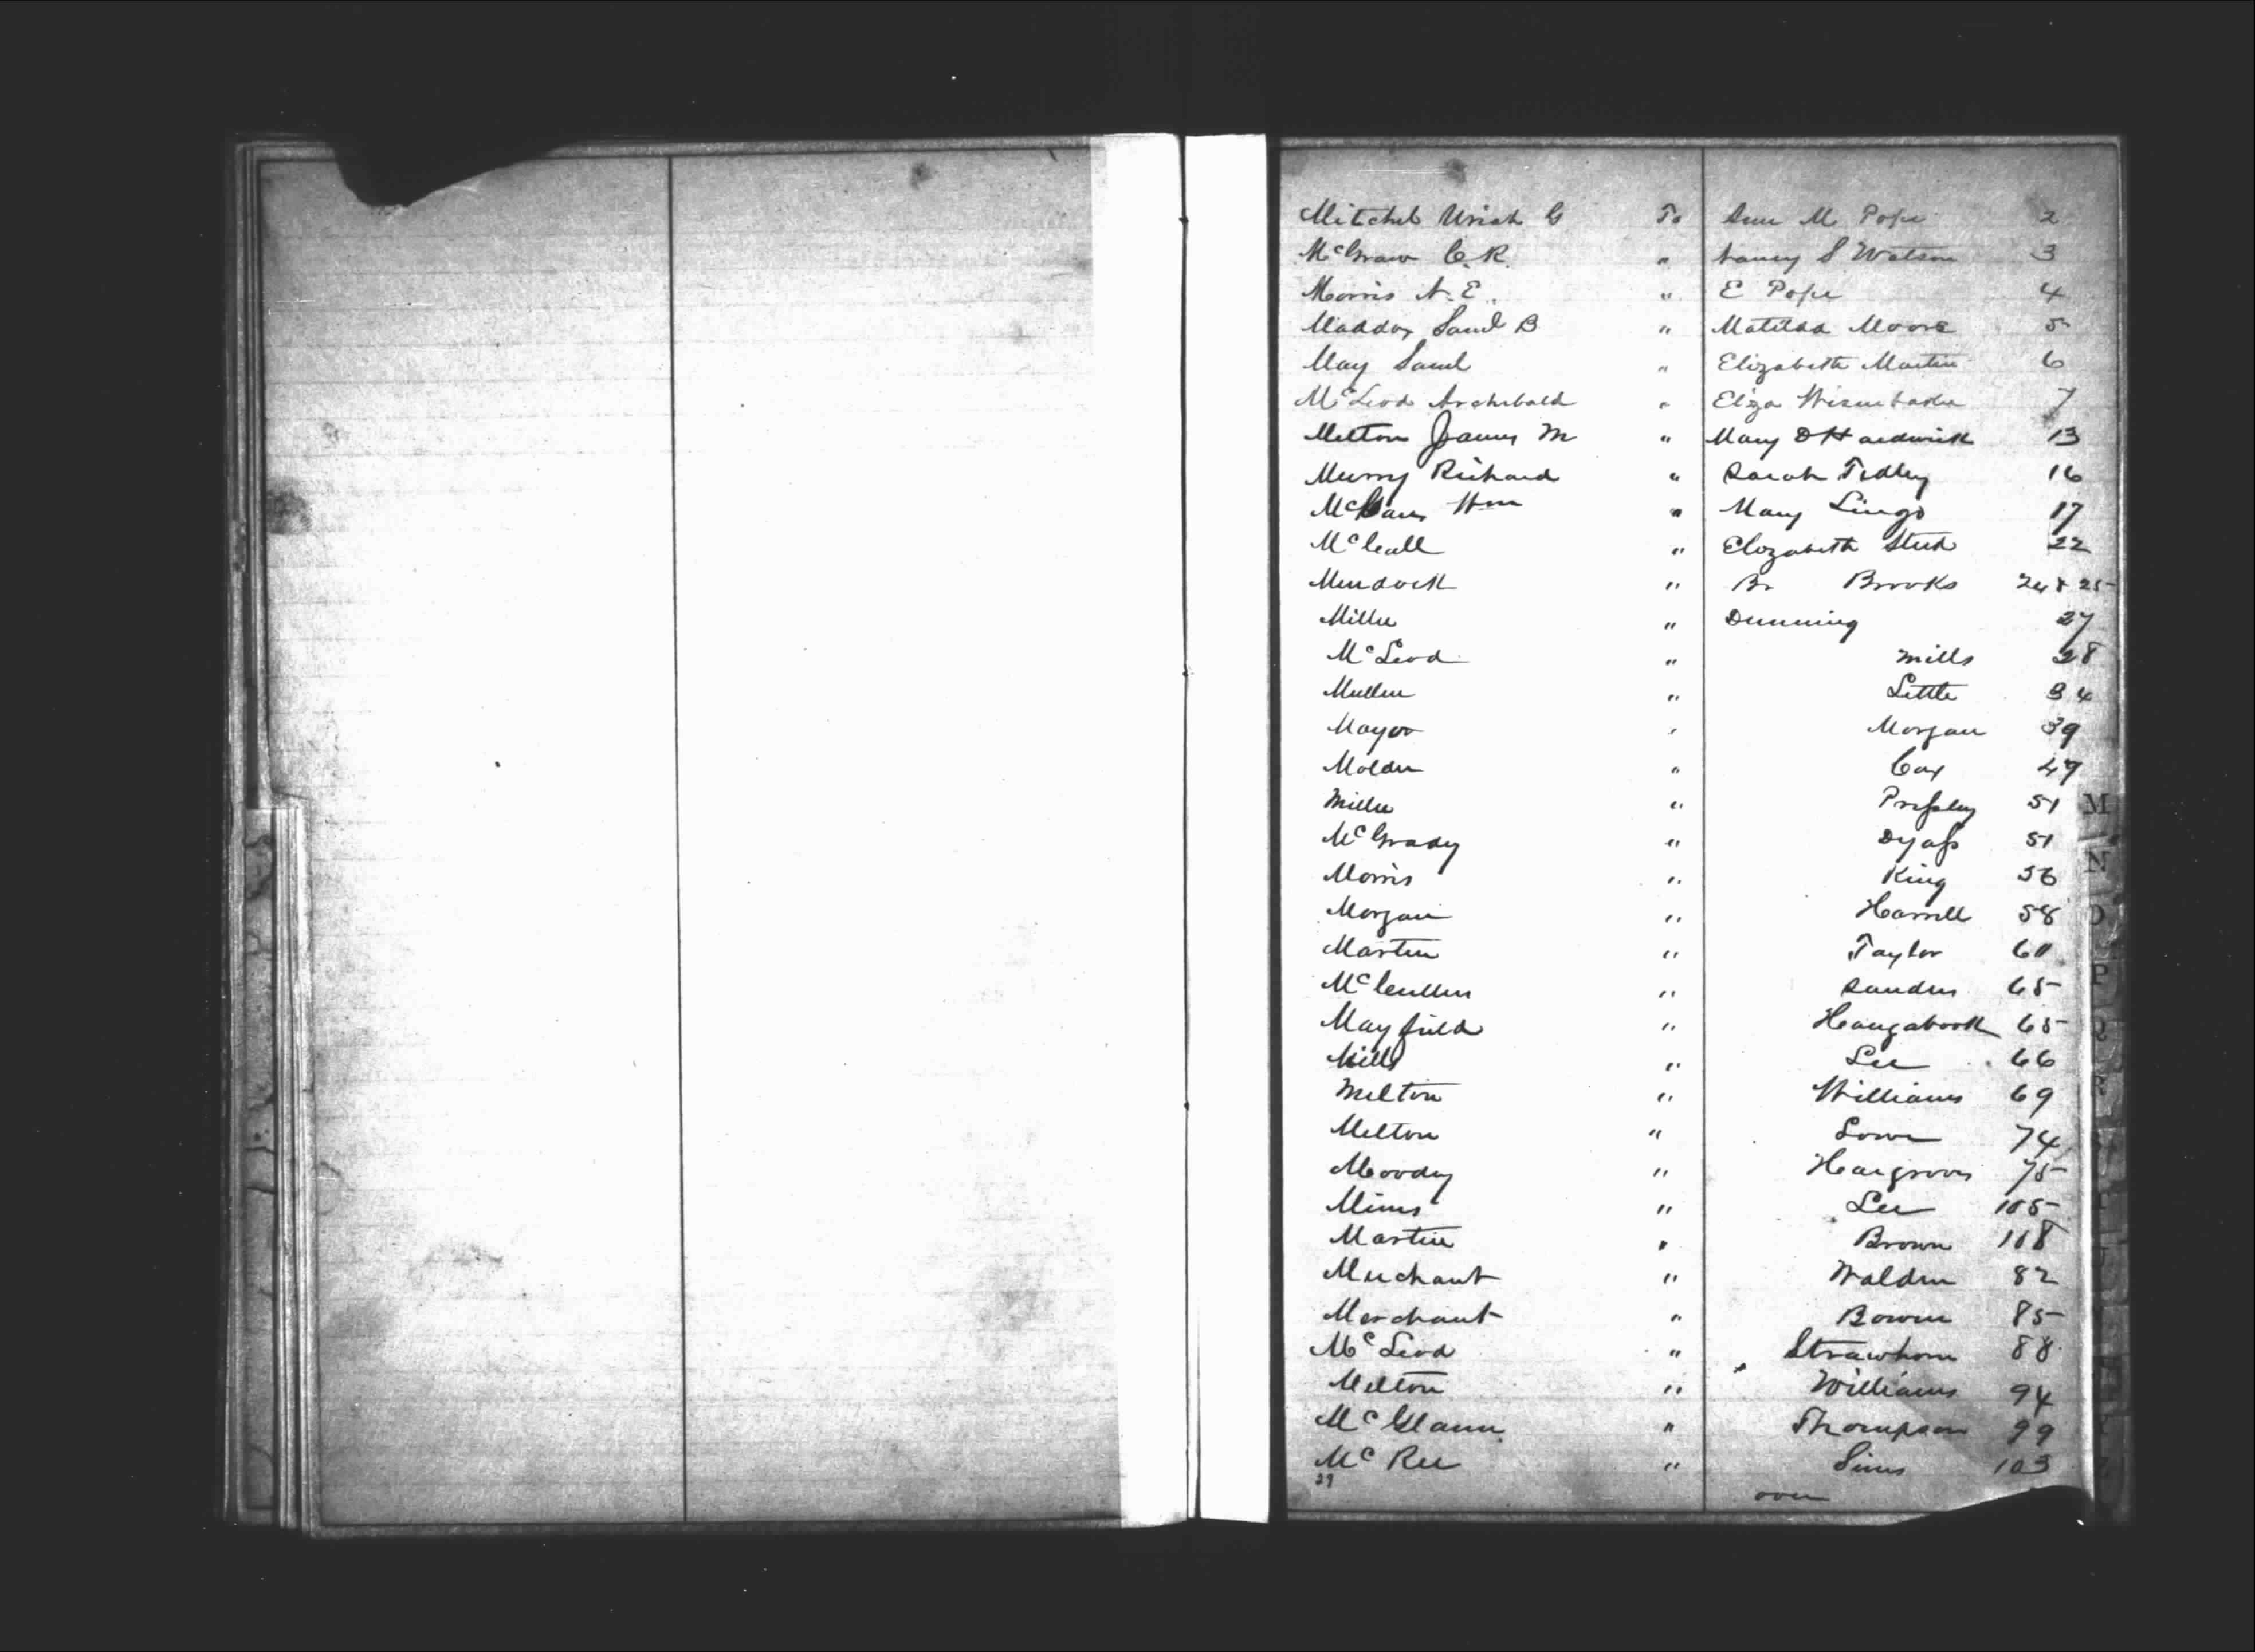 Mitchel Uriah G To Ann M Pope 2
McGraw C. R. " Nancy S Watson 3
Morris N. E. " E Pope 4
Maddox Saml B " Matilda Moore 5
May Saml " Elizabeth Martin 6
McLeod Archibald " Eliza 7
Melton James M " Mary D Hardwick 13
Murry Richard " Sarah Tedley 16
Wm " Mary Lingo 17
McCall " Elizabeth Steed 22
Murdock " Br Brooks 24 & 25
Miller " Dunning 27
McLeod " Mills 28
Mullen " Little 34
Mayor " Morgan 39
Molden " Cox 49
Miller " Presley 51
McGrady " Dyass 51
Morris " King 56
Morgan " Harrell 58
Martin " Taylor 60
McCullen " Sanders 65
Mayfield " Haugabook 65
Mills " Lee 66
Melton " Williams 69
Melton " Lowe 74
Moody " Hargroves 75
Mims " Lee 105
Martin " Brown 108
Merchant " Walden 82
Merchant " Bowen 85
McLeod " Strawhorn 88
Melton " Williams 94
McGlaun " Thompson 99
McRee " Sims 103
29
over
M
N
O
P
Q
R